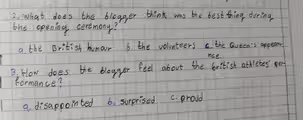 2. What does the blogger think was the best thing during
the opening ceremony?
a. the British humour b. the volunteers c. the Queen's appea-
nce.
3. How does the blogger feel about the British athletes' pe-
formance?
a. disappointed b. surprised c. proud